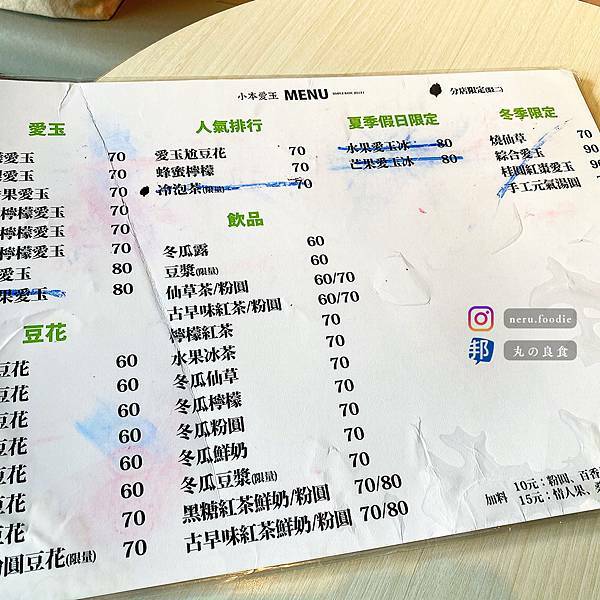 小本愛玉 MENU
分店限定(點二)
愛玉
愛玉 70
愛玉 70
果愛玉 70
檸檬愛玉 70
檸檬愛玉 70
檸檬愛玉 70
愛玉 80
果愛玉 80
豆花
豆花 60
豆花 60
豆花 60
豆花 60
豆花 60
豆花 70
圓豆花(限量) 70
人氣排行
愛玉尬豆花 70
蜂蜜檸檬 70
冷泡茶(限量) 70
飲品
冬瓜露 60
豆漿(限量) 60
仙草茶/粉圓 60/70
古早味紅茶/粉圓 60/70
檸檬紅茶 70
水果冰茶 70
冬瓜仙草 70
冬瓜檸檬 70
冬瓜粉圓 70
冬瓜鮮奶 70
冬瓜豆漿(限量) 70
黑糖紅茶鮮奶/粉圓 70/80
古早味紅茶鮮奶/粉圓 70/80
夏季假日限定
水果愛玉冰 80
芒果愛玉冰 80
冬季限定
燒仙草 70
綜合愛玉 90
桂圓紅棗愛玉 90
手工元氣湯圓
neru.foodie
邦 丸の良食
加料 10元：粉圓、百香
15元：情人果、